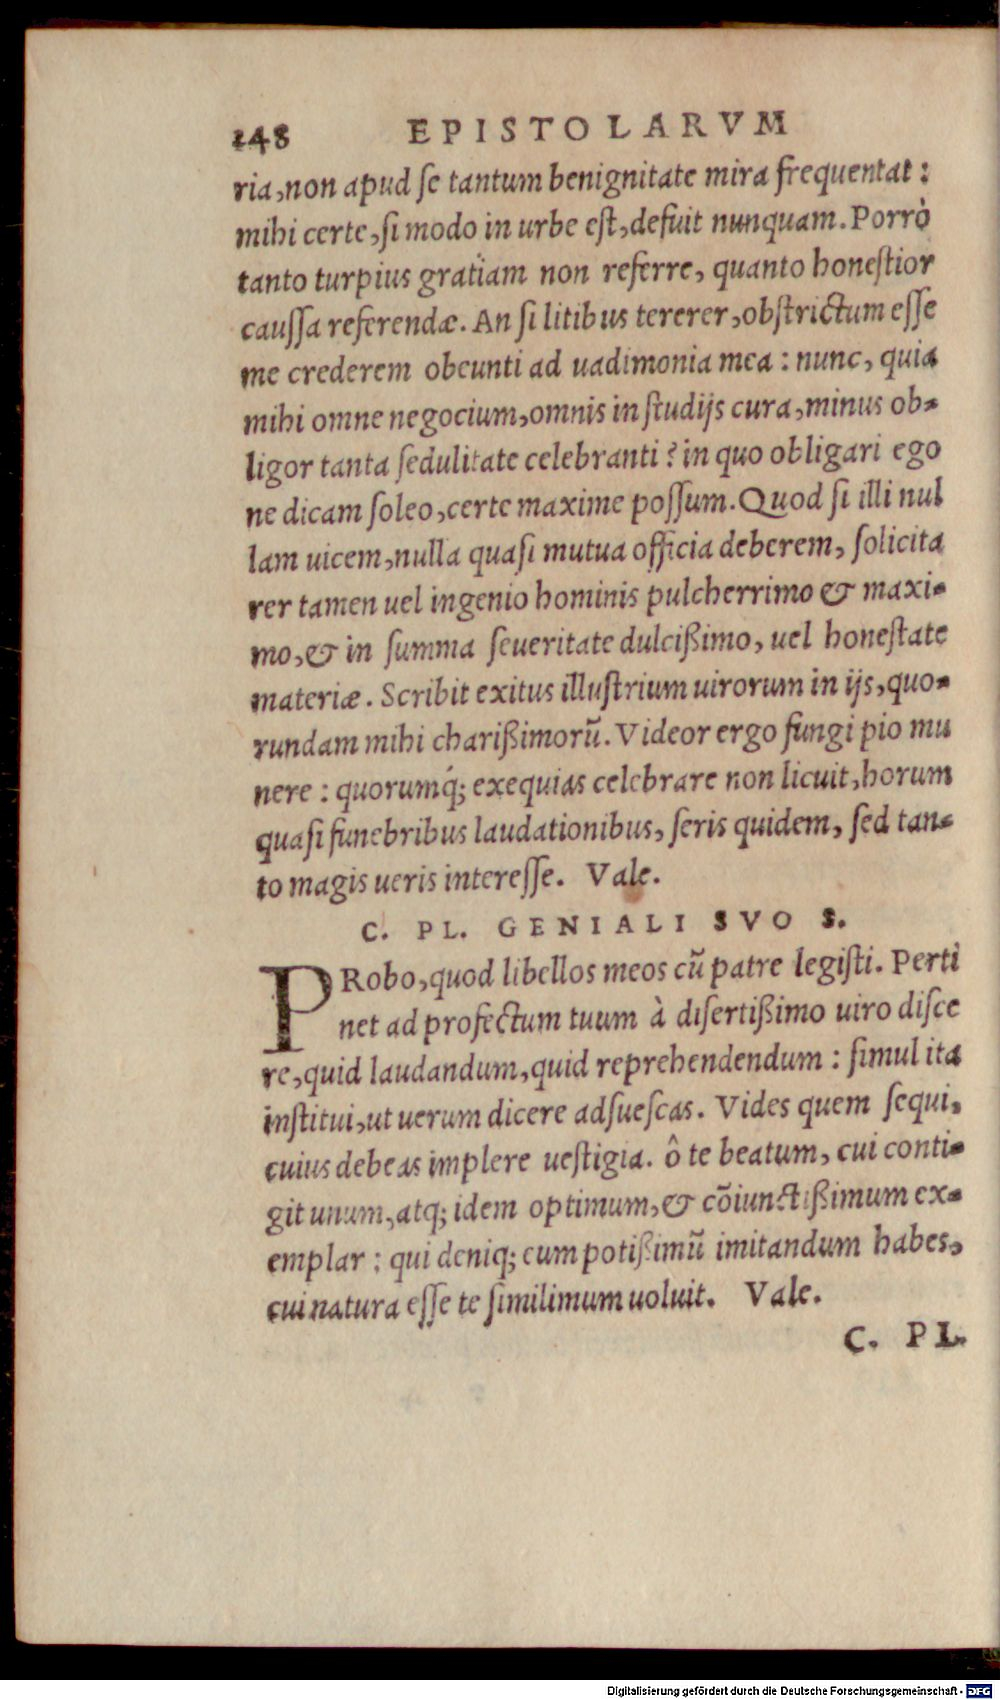 248 EPISTOLARVM
ria, non apud se tantum benignitate mira frequentat:
mihi certe, si modo in urbe est, defuit nunquam. Porrò
tanto turpius gratiam non referre, quanto honestior
caussa referendæ. An si litibus tererer, obstrictum esse
me crederem obeunti ad uadimonia mea: nunc, quia
mihi omne negocium, omnis in studijs cura, minus ob-
ligor tanta sedulitate celebranti? in quo obligari ego
ne dicam soleo, certe maxime possum. Quod si illi nul
lam uicem, nulla quasi mutua officia deberem, solicita
rer tamen uel ingenio hominis pulcherrimo & maxi-
mo, & in summa seueritate dulcißimo, uel honestate
materiæ. Scribit exitus illustrium uirorum in ijs, quo-
rundam mihi charißimorũ. Videor ergo fungi pio mu
nere: quorumq́; exequias celebrare non licuit, horum
quasi funebribus laudationibus, seris quidem, sed tan-
to magis ueris interesse. Vale.
C. PL. GENIALI SVO S.
PRobo, quod libellos meos cũ patre legisti. Perti
net ad profectum tuum à disertißimo uiro disce
re, quid laudandum, quid reprehendendum: simul ita
institui, ut uerum dicere adsuescas. Vides quem sequi,
cuius debeas implere uestigia. ô te beatum, cui conti-
git unum, atq; idem optimum, & cõiunctißimum ex-
emplar: qui deniq; eum potißimũ imitandum habes,
cui natura esse te similimum uoluit. Vale.
C. PL.
Digitalisierung gefördert durch die Deutsche Forschungsgemeinschaft - DFG